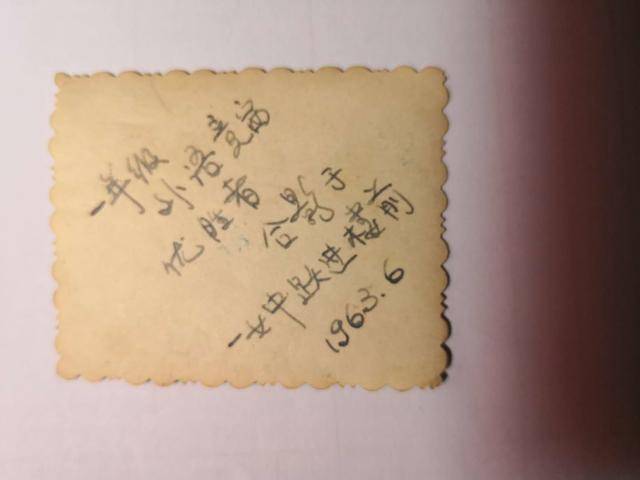 一年级
外语竞赛
优胜者
合影于
一女中跃进楼前
1963.6